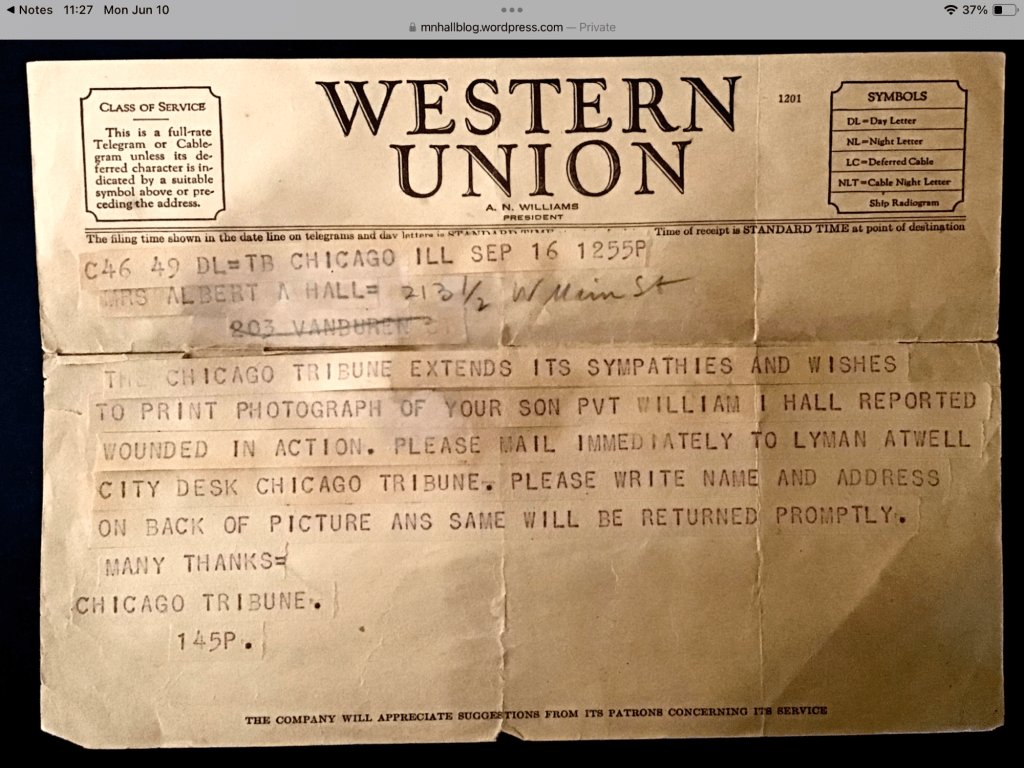 Notes 11:27 Mon Jun 10
37%
mnhallblog.wordpress.com — Private
CLASS OF SERVICE
This is a full-rate
Telegram or Cable-
gram unless its de-
ferred character is in-
dicated by a suitable
symbol above or pre-
ceding the address.
WESTERN
UNION
A. N. WILLIAMS
PRESIDENT
1201
SYMBOLS
DL=Day Letter
NL=Night Letter
LC=Deferred Cable
NLT=Cable Night Letter
Ship Radiogram
The filing time shown in the date line on telegrams and day letters is STANDARD TIME
Time of receipt is STANDARD TIME at point of destination
C46 49 DL=TB CHICAGO ILL SEP 16 1255P
MRS ALBERT A HALL= 213 1/2 W Main St
203 VANBUREN ST
THE CHICAGO TRIBUNE EXTENDS ITS SYMPATHIES AND WISHES
TO PRINT PHOTOGRAPH OF YOUR SON PVT WILLIAM I HALL REPORTED
WOUNDED IN ACTION. PLEASE MAIL IMMEDIATELY TO LYMAN ATWELL
CITY DESK CHICAGO TRIBUNE. PLEASE WRITE NAME AND ADDRESS
ON BACK OF PICTURE ANS SAME WILL BE RETURNED PROMPTLY.
MANY THANKS=
CHICAGO TRIBUNE.
145P.
THE COMPANY WILL APPRECIATE SUGGESTIONS FROM ITS PATRONS CONCERNING ITS SERVICE